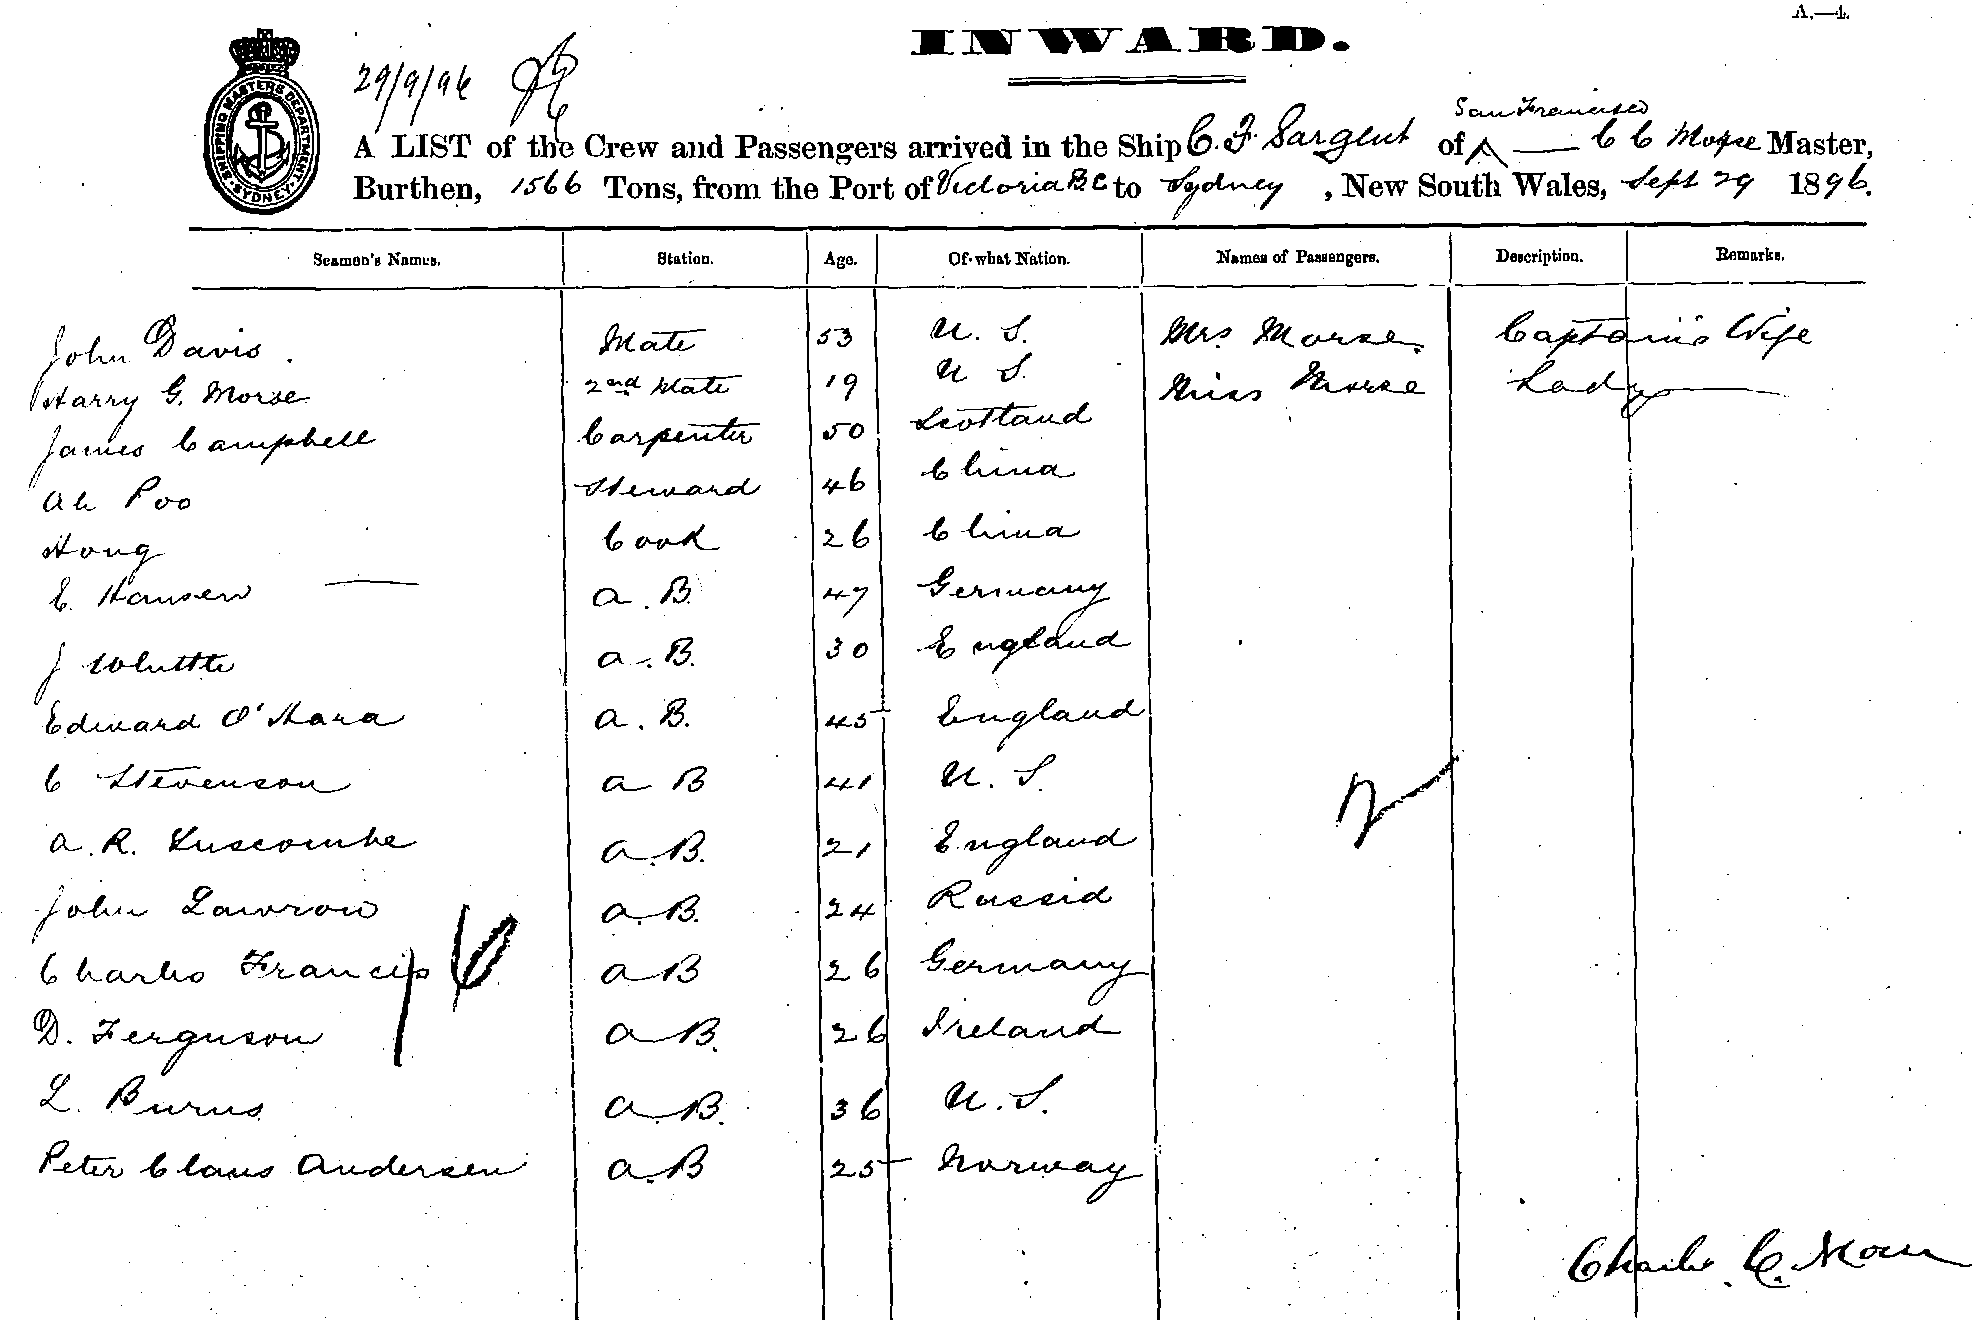 A.—4.
INWARD.
29/9/96
SHIPPING MASTERS DEPARTMENT. SYDNEY.
San Francisco
A LIST of the Crew and Passengers arrived in the Ship C. F. Sargent of — C C Morse Master,
Burthen, 1566 Tons, from the Port of Victoria B C to Sydney, New South Wales, Sept 29 1896.
Seamen's Names. Station. Age. Of what Nation. Names of Passengers. Description. Remarks.
John Davis. Mate 53 U. S. Mrs. Morse. Captain's Wife
Harry G. Morse 2nd Mate 19 U S. Miss Morse Lady
James Campbell Carpenter 50 Scotland
Ah Poo Steward 46 China
Hong Cook 26 China
E. Hansen — A. B. 47 Germany
J A. B. 30 England
Edward O'Hara A. B. 45 England
C Stevenson A B 41 U. S.
A. R. Luscombe A. B. 21 England
John A. B. 24 Russia
Charles Francis A B 26 Germany
D. Ferguson A B. 26 Ireland
L. Burns A. B. 36 U. S.
Peter Claus Andersen A. B 25 Norway
Charles C. Morse